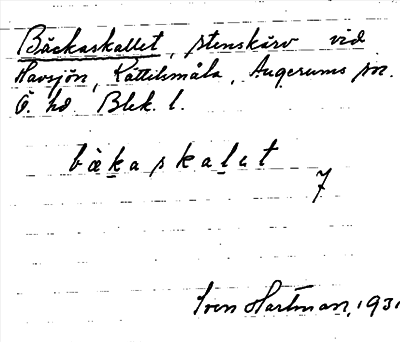 Bäckaskallet, stenskärv vid
Havsjön, Kättilsmåla, Augerums sn.
Ö. hd. Blek. l.
bäkaskalet
7
Sven Hartman, 1931